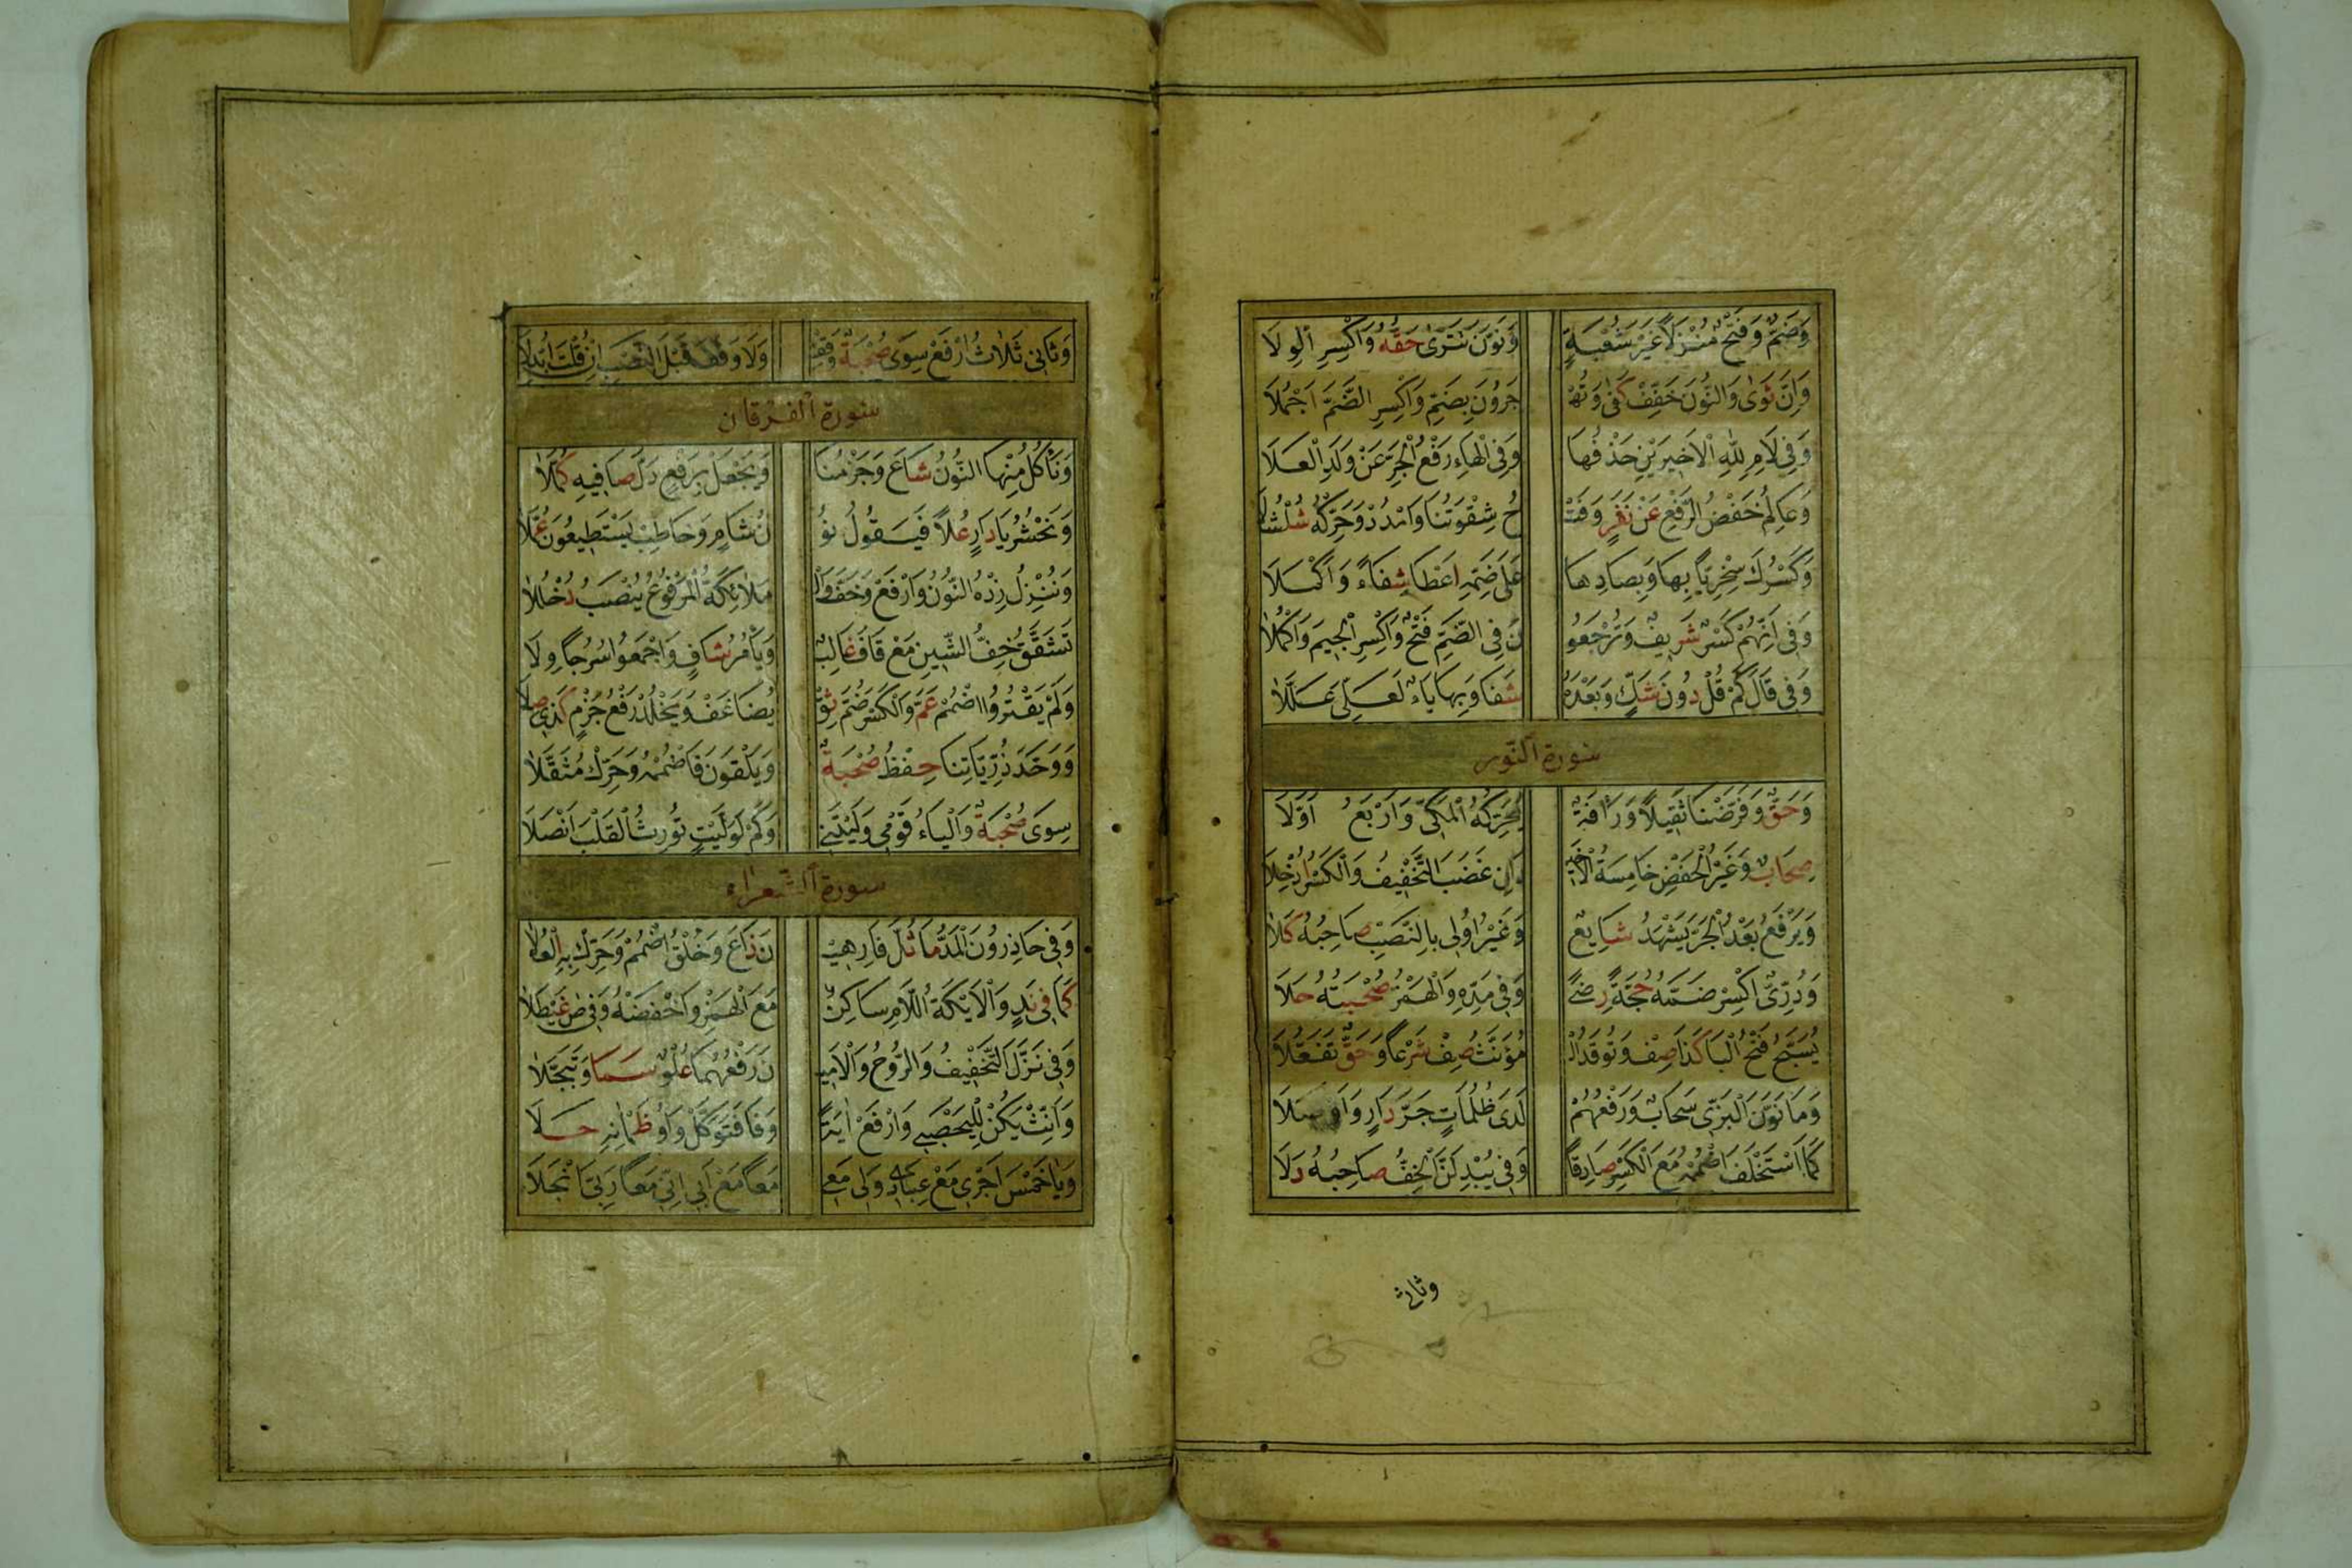 وَضَمٌّ وَفَتْحٌ مُنْزَلًا غَيْرَ شُعْبَةٍ وَنَوَّنَ تَتْرَى حَقُّهُ وَاكْسِرِ الْوِلَا
وَاِنَّ ثَوَى وَالنُّونَ خَفِّفْ كَفَى وَتَهْ جُرُونَ بِضَمٍّ وَاكْسِرِ الضَّمَّ اَجْمَلَا
وَفِي لَامِ لِلّٰهِ الْاَخِيرَيْنِ حَذْفُهَا وَفِي الْهَاءِ رَفْعُ الْجَرِّ عَنْ وَلَدِ الْعَلَا
وَعَالِمُ خَفْضُ الرَّفْعِ عَنْ نَفَرٍ وَفَتْ حُ شِقْوَتُنَا وَامْدُدْ وَحَرِّكْهُ شُلْشُلَا
وَكَسْرُكَ سُخْرِيًّا بِهَا وَبِصَادِهَا عَلَى ضَمِّهِ اَعْطَا شِفَاءً وَاَكْمَلَا
وَفِي اَنَّهُمْ كَسْرٌ شَرِيفٌ وَتُرْجَعُو نَ فِي الضَّمِّ فَتْحٌ وَاكْسِرِ الْجِيمَ وَاكْمُلَا
وَفِي قَالَ كَمْ قُلْ دُونَ شَكٍّ وَبَعْدَهُ شَفَا وَبِهَا يَاءٌ لَعَلِّي عُلِّلَا
سورة النور
وَحَقٌّ وَفَرَّضْنَا ثَقِيلًا وَرَأْفَةٌ يُحَرِّكُهُ الْمَكِّي وَاَرْبَعُ اَوَّلَا
صِحَابٌ وَغَيْرُ الْحَفْصِ خَامِسَةُ الْاَخِيرُ اَنْ غَضِبَ التَّخْفِيفُ وَالْكَسْرُ اُدْخِلَا
وَيَرْفَعُ بَعْدُ الْجَرَّ يَشْهَدُ شَائِعٌ وَغَيْرُ اُولِي بِالنَّصْبِ صَاحِبُهُ كَلَا
وَدُرِّيٌّ اكْسِرْ ضَمَّهُ حُجَّةً رِضًى وَفِي مَدِّهِ وَالْهَمْزُ صُحْبَتُهُ حَلَا
يُسَبِّحُ فَتْحُ الْبَا كَذَا صِفْ وَتُوقَدُ الْ مُؤَنَّثُ صِفْ شَرْعًا وَحَقٌّ تَفَعَّلَا
وَمَا نَوَّنَ الْبَزِّي سَحَابٌ وَرَفْعُهُمْ لَدَى ظُلُمَاتٍ جَرَّ دَارٍ وَاَوْصَلَا
كَمَا اسْتَخْلَفَ اضْمُمْهُ مَعَ الْكَسْرِ صَادِقًا وَفِي يُبْدِلَنَّ الْخِفُّ صَاحِبُهُ دَلَا
وثاني
وَثَانِي ثَلَاثُ ارْفَعْ سِوَى صُحْبَةٌ وَقِفْ وَلَا وَقْفَ قَبْلَ النَّصْبِ اِنْ قُلْتَ اُبْدِلَا
سورة الفرقان
وَنَأْكُلُ مِنْهَا النُّونُ شَاعَ وَجَزْمُنَا وَيَجْعَلْ بِرَفْعٍ دَلَّ صَافِيهِ كُمَّلَا
وَنَحْشُرُ يَا دَارٍ عُلًا فَيَقُولُ نُو نُ شَامٍ وَخَاطِبْ يَسْتَطِيعُونَ عُمَّلَا
وَنُنْزِلُ زِدْهُ النُّونُ وَارْفَعْ وَخِفَّ وَالْ مَلَائِكَةُ الْمَرْفُوعُ يُنْصَبُ دُخْلُلَا
تَشَقَّقُ خِفُّ الشِّينِ مَعْ قَافَ غَالِبٌ وَيَأْمُرُ شَافٍ وَاجْمَعُوا سُرُجًا وِلَا
وَلَمْ يَقْتُرُوا اضْمُمْ عَمَّ وَالْكَسْرَ ضُمَّ ثِقْ يُضَاعَفْ وَيَخْلُدْ رَفْعُ جَزْمٍ كَذِي صِلَا
وَوَحَّدَ ذُرِّيَّاتِنَا حِفْظُ صُحْبَةٌ وَيَلْقَوْنَ فَاضْمُمْهُ وَحَرِّكْ مُثَقَّلَا
سِوَى صُحْبَةٌ وَالْيَاءُ قَوْمِي وَلَيْتَنِي وَكَمْ لَوْ وَلَيْتٍ تُورِثُ الْقَلْبَ اَنْصُلَا
سورة الشعراء
وَفِي حَاذِرُونَ الْمَدُّ مَا ثُلَّ فَارِهِي نَ ذَاعَ وَخُلْقُ اضْمُمْ وَحَرِّكْ بِهِ الْعُلَا
كَمَا فِي نَدٍ وَالْاَيْكَةَ اللَّامُ سَاكِنٌ مَعَ الْهَمْزِ وَاخْفِضْهُ وَفِي صَ غَيْطَلَا
وَفِي نَزَّلَ التَّخْفِيفُ وَالرُّوحُ وَالْاَمِي نَ رَفْعُهُمَا عُلْوٌ سَمَا وَتَبَجَّلَا
وَاَنِّثْ يَكُنْ لِلْيَحْصَبِي وَارْفَعْ اٰيَةً وَفَا فَتَوَكَّلْ وَاوُ ظَمْاٰنِهِ حَلَا
وَيَا خَمْسَ اَجْرِي مَعْ عِبَادِي وَلِي مَعِي مَعًا مَعْ اَبِي اِنِّي مَعًا رَبِّيَ انْجَلَا